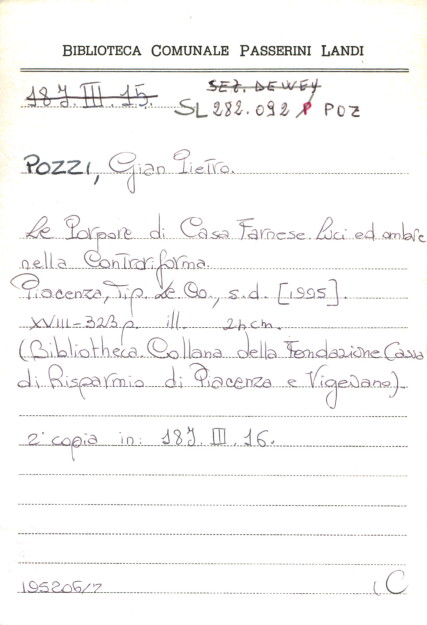 BIBLIOTECA COMUNALE PASSERINI LANDI
18J. III. 15.
SEZ. DEWEY
SL 282.092 POZ
POZZI, Gian Pietro.
Le Porpore di Casa Farnese. Luci ed ombre
nella Controriforma.
Piacenza, Tip. Le.Co., s.d. [1995].
XVIII-323 p. ill. 24 cm.
(Bibliotheca. Collana della Fondazione Cassa
di Risparmio di Piacenza e Vigevano).
2ª copia in: 18J. III. 16.
195206/7
C